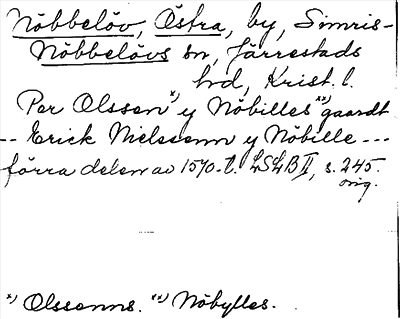 Nöbbelöv, Östra, by, Simris-
Nöbbelövs sn, Järrestads
hd, Krist. l.
Per Olssen x) y Nöbilles xx) gaardt
-- Erick Nielssenn y Nöbille ---
förra delen av 1570-t. LSLB II, s. 245.
orig.
x) Olssenns. xx) Nöbylles.